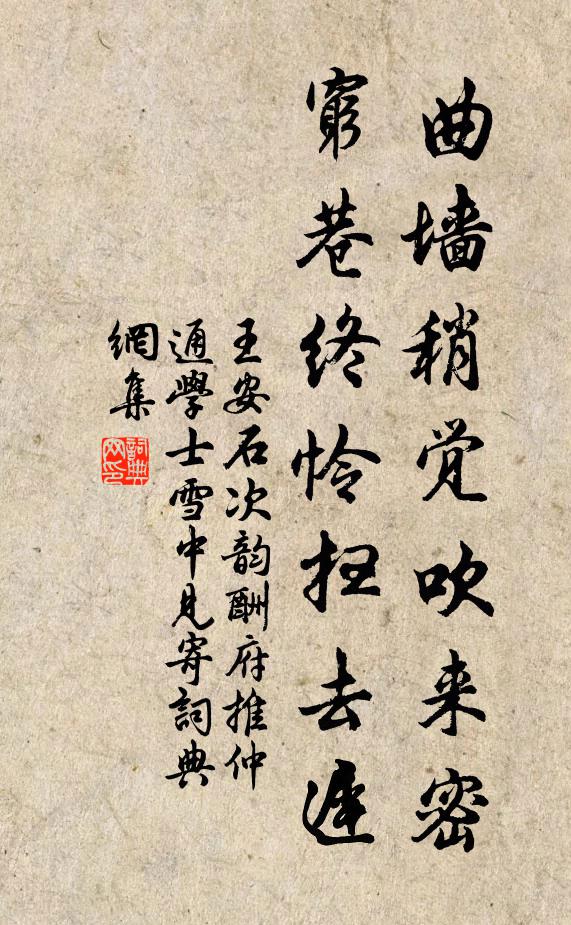 曲墙稍觉吹来密
穷巷终怜扫去遲
王安石次韵酬府推仲
通學士雪中見寄詞典
網集
詞典
网印